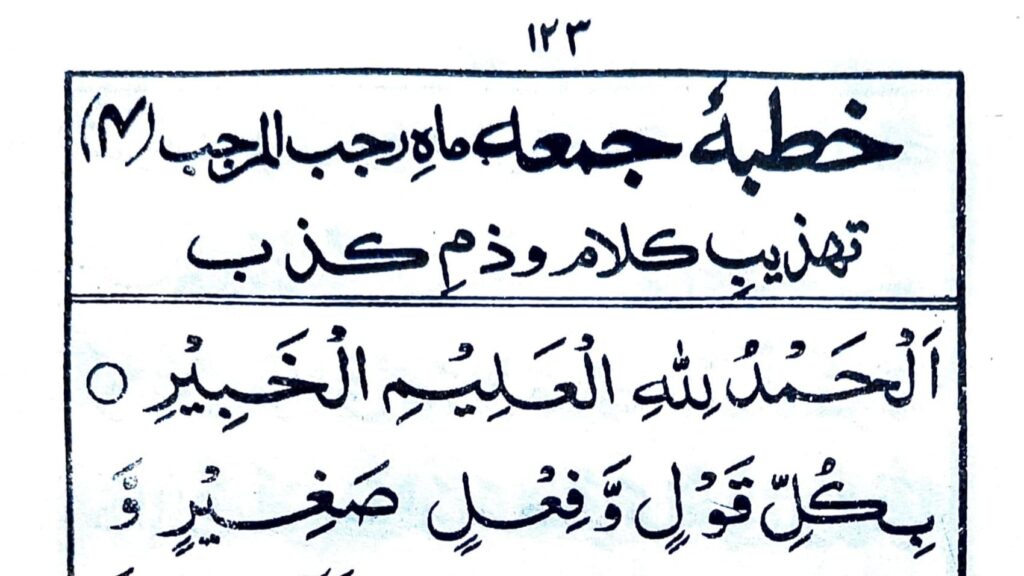 ۱۲۳
خطبۂ جمعہ ماہِ رجب المرجب (۴)
تہذیبِ کلام و ذمِ کذب
اَلْحَمْدُ لِلّٰهِ الْعَلِيْمِ الْخَبِيْرِ ○
بِكُلِّ قَوْلٍ وَّفِعْلٍ صَغِيْرٍ وَّ